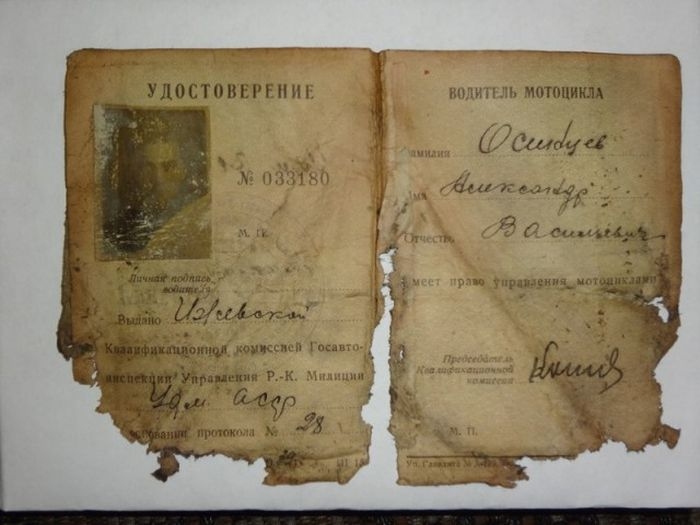 УДОСТОВЕРЕНИЕ
№ 033180
М. П.
Личная подпись
водителя
Выдано Ижевской
Квалификационной комиссией Госавто-
инспекции Управления Р.-К. Милиции
Удм АССР
основании протокола № 28
ВОДИТЕЛЬ МОТОЦИКЛА
амилия Осинцев
Имя Александр
Отчество Васильевич
меет право управления мотоциклами
Председатель
Квалификационной
комиссии
М. П.